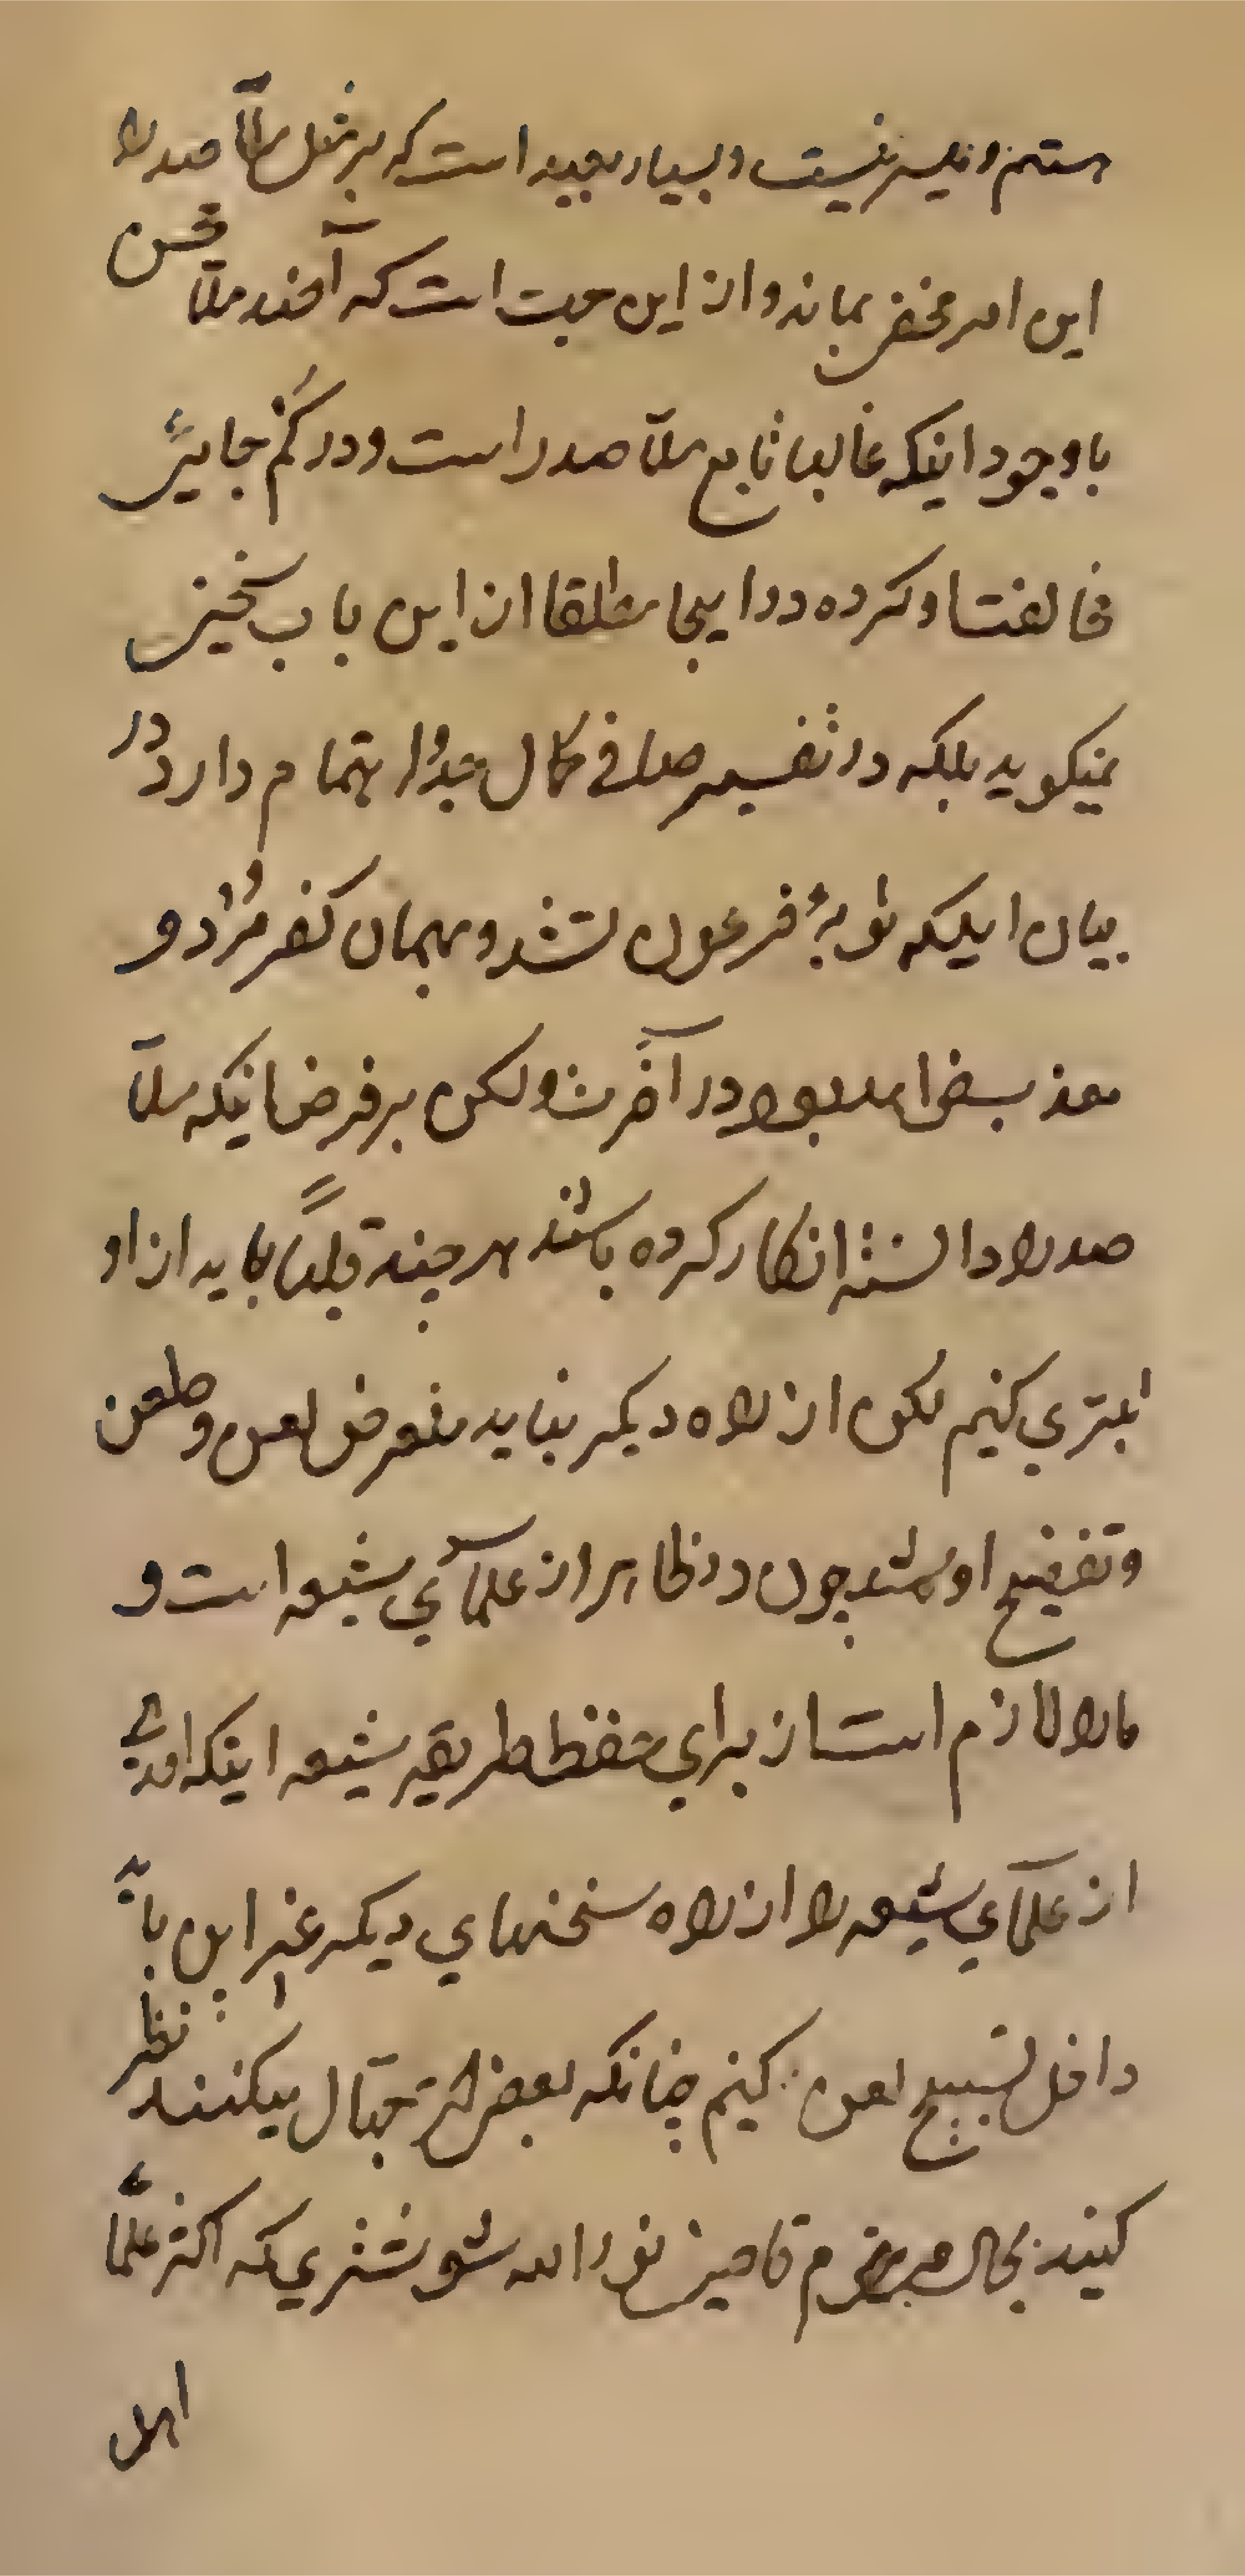 هستم و نیست و بسیار بعید است که بر مثل ملّا صدرا
این امر مخفی بماند و از این جهت است که آخوند ملّا محسن
با وجود اینکه غالبا تابع ملّا صدرا است و در کم جایی
مخالفت او کرده در اینجا مطلقا از این باب سخنی
نمیگوید بلکه در تفسیر صافی کمال جد و اهتمام دارد در
بیان اینکه توبۀ فرعون نشد و بهمان کفر مُرد و
معذب بعذاب ابد بود در آخرت ولکن بر فرض اینکه ملّا
صدرا دانسته انکار کرده باشد هر چند قلباً باید از او
تبری کنیم لکن از راه دیگر نباید متعرض لعن و طعن
و تفضیح او شد چون در ظاهر از علمآی شیعه است و
ما را لازم است از برای حفظ طریقه شیعه اینکه احدی
از علمآی شیعه را از راه سخنهای دیگر غیر این باید
داخل تسبیح لعن نکنیم چنانکه بعضی از جهّال میکنند نظر
کنید بحال مرحوم قاضی نور الله شوشتری که اکثر علمآ
اهل